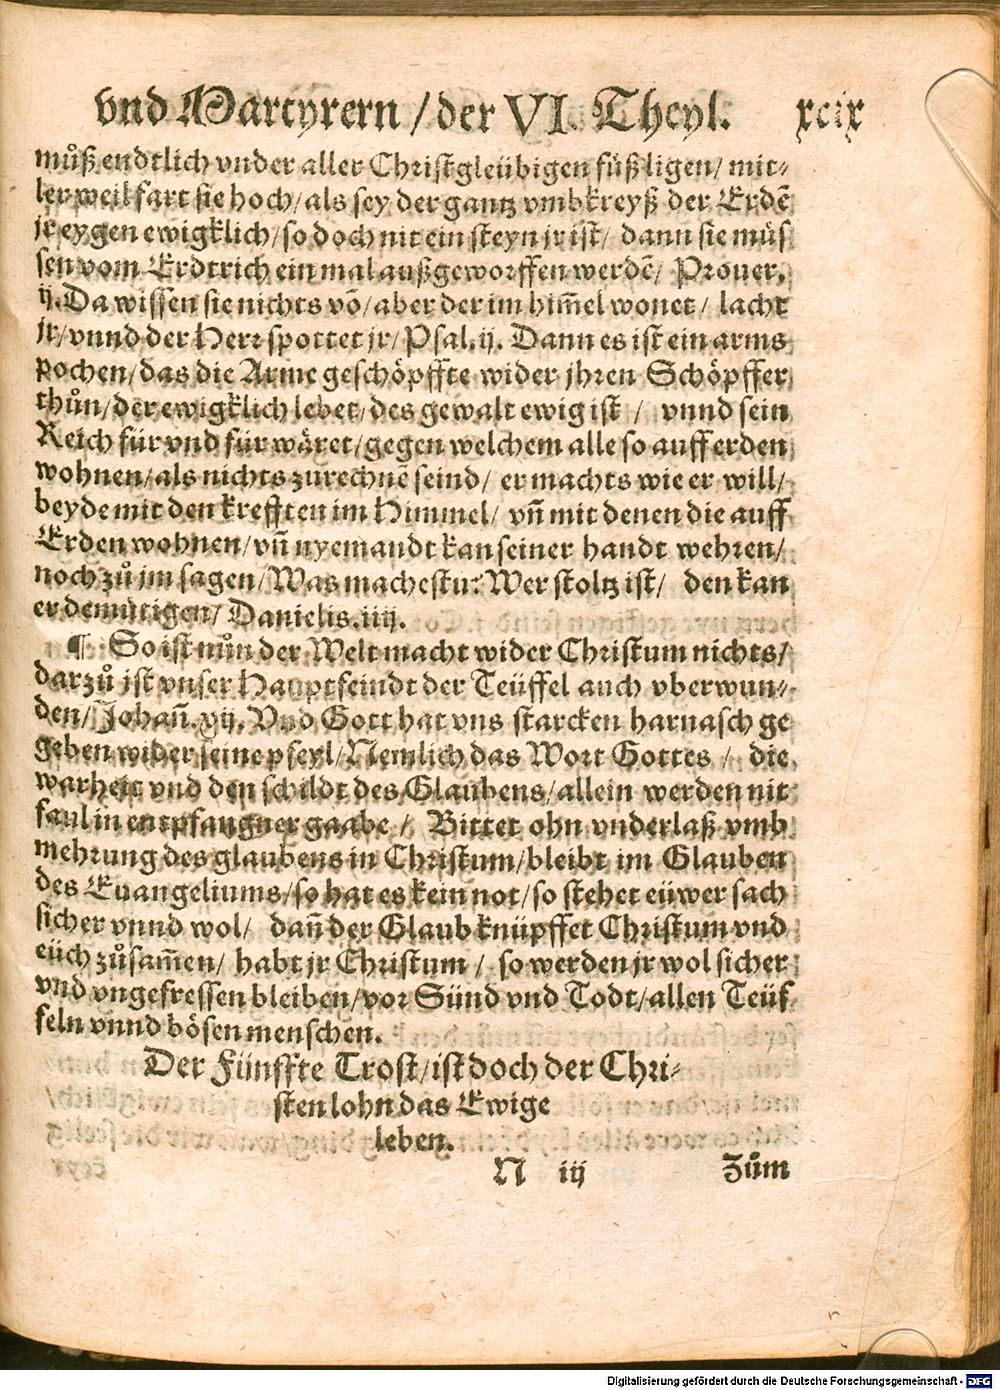 vnd Martyrern / der VI. Theyl. xcix
můß endtlich vnder aller Christgleübigen füß ligen / mit-
ler weil fart sie hoch / als sey der gantz vmbkreyß der Erdē
jr eygen ewigklich / so doch nit ein steyn jr ist / dann sie müs
sen vom Erdtrich ein mal außgeworffen werdē / Prouer.
ij. Da wissen sie nichts võ / aber der im him̃el wonet / lacht
jr / vnnd der Herr spottet jr / Psal. ij. Dann es ist ein arms
pochen / das die Arme geschöpffte wider jhren Schöpffer
thůn / der ewigklich lebet / des gewalt ewig ist / vnnd sein
Reich für vnd für wäret / gegen welchem alle so auff erden
wohnen / als nichts zurechnē seind / er machts wie er will /
beyde mit den krefften im Himmel / vñ mit denen die auff
Erden wohnen / vñ nyemandt kan seiner handt wehren /
noch zů jm sagen / Was machestu? Wer stoltz ist / den kan
er demütigen / Danielis. iiij.
¶ So ist nůn der Welt macht wider Christum nichts /
darzů ist vnser Hauptfeindt der Teüffel auch vberwun-
den / Johañ. xij. Vnd Gott hat vns starcken harnasch ge
geben wider seine pfeyl / Nemlich das Wort Gottes / die
warheit vnd den schildt des Glaubens / allein werden nit
faul in entpfangner gaabe / Bittet ohn vnderlaß vmb
mehrung des glaubens in Christum / bleibt im Glauben
des Euangeliums / so hat es kein not / so stehet eüwer sach
sicher vnnd wol / dañ der Glaub knüpffet Christum vnd
eüch zůsam̃en / habt jr Christum / so werden jr wol sicher
vnd vngefressen bleiben / vor Sünd vnd Todt / allen Teüf
feln vnnd bösen menschen.
Der Fünffte Trost / ist doch der Chri-
sten lohn das Ewige
leben.
N iij Zům
Digitalisierung gefördert durch die Deutsche Forschungsgemeinschaft - DFG